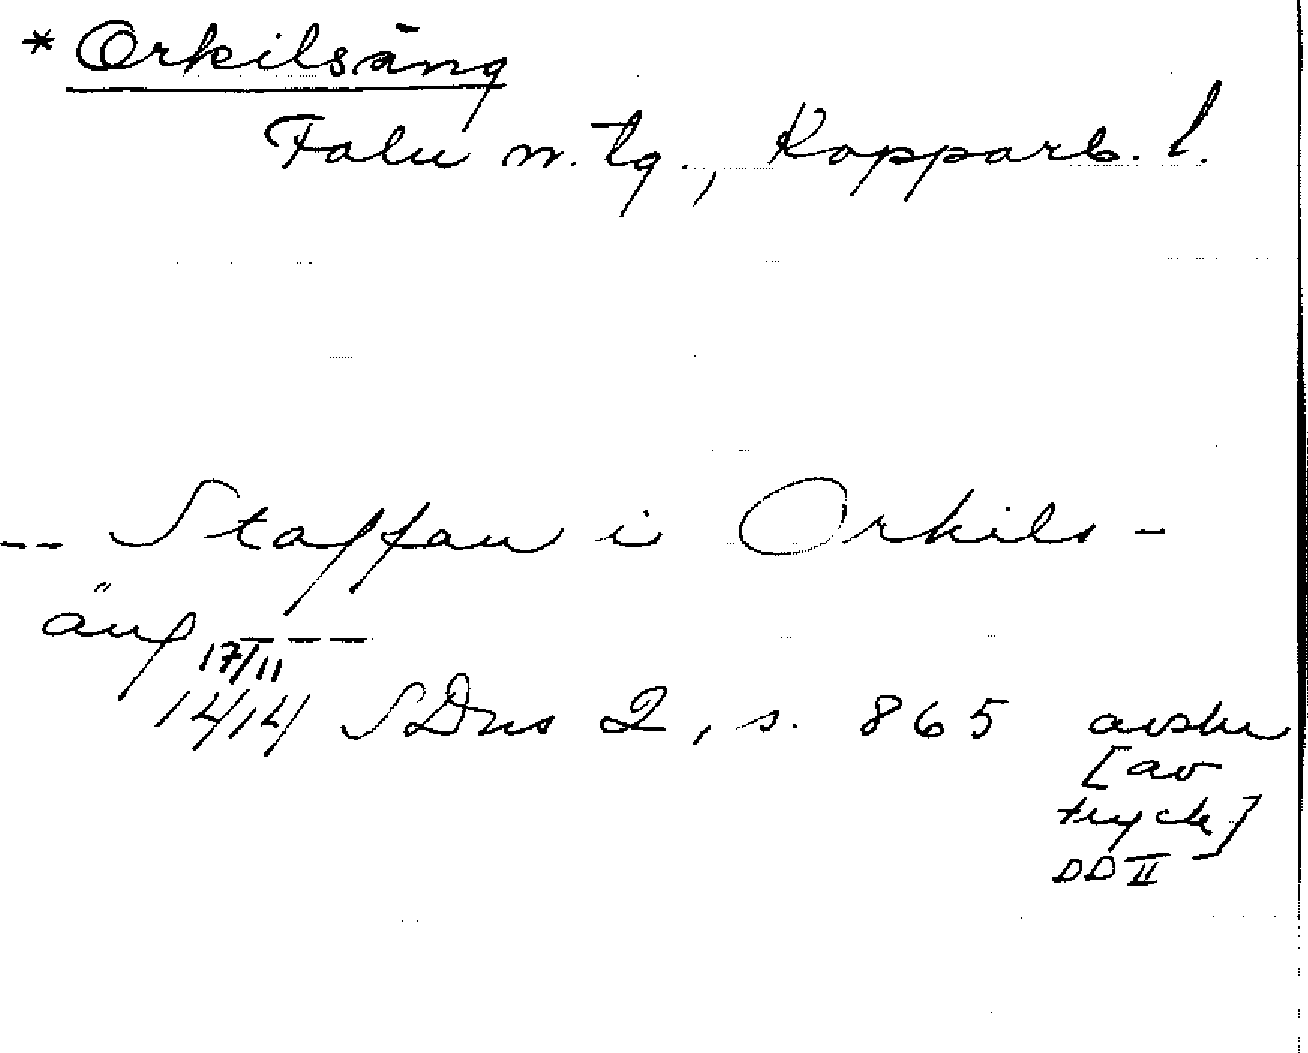 * Orkilsäng
Falu n. tg., Kopparb. l.
-- Staffan i Orkils-
äng ---
17/11
1414 SDns 2, s. 865 avskr
[av
tryck]
DD II